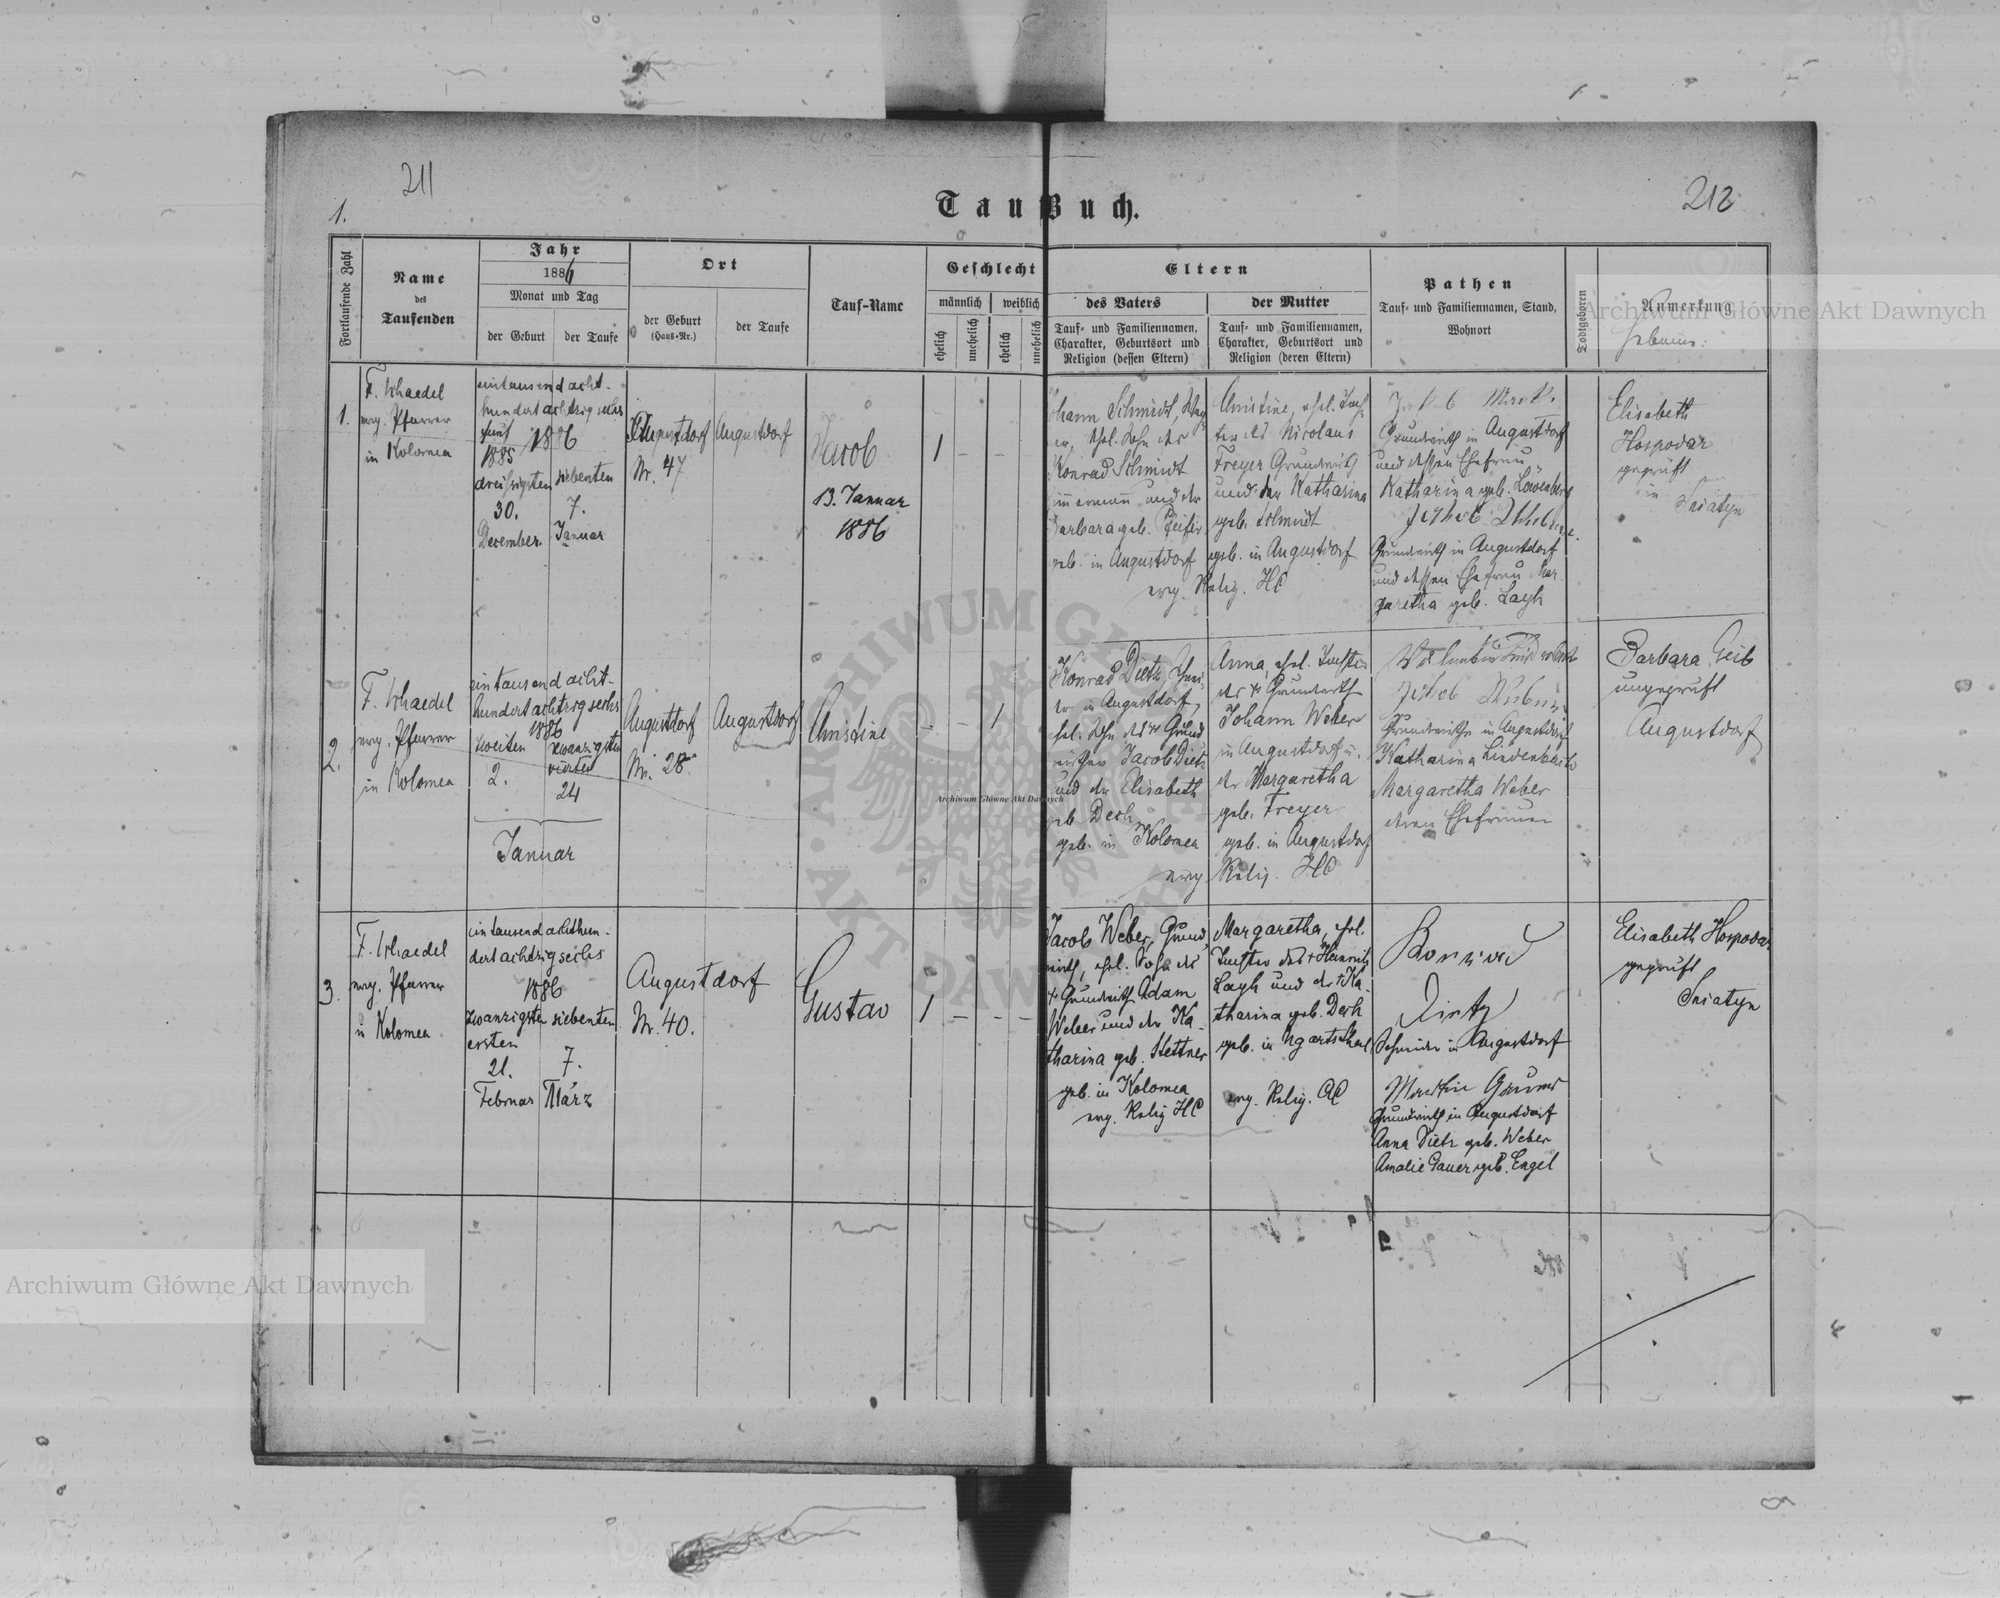 211
212
1.
TaufBuch.
Fortlaufende Zahl
Name
des
Taufenden
Jahr
1886
Monat und Tag
der Geburt
der Taufe
Ort
der Geburt
(Haus-Nr.)
der Taufe
Tauf-Name
Geschlecht
männlich
weiblich
ehelich
unehelich
ehelich
unehelich
Eltern
des Vaters
Tauf- und Familiennamen,
Charakter, Geburtsort und
Religion (dessen Eltern)
der Mutter
Tauf- und Familiennamen,
Charakter, Geburtsort und
Religion (deren Eltern)
Pathen
Tauf- und Familiennamen, Stand,
Wohnort
Todtgeboren
Anmerkung
Hebamme:
1.
F. Schaedel
evg. Pfarrer
in Kolomea
eintausend acht-
hundert achtzig sechs
fünf
1885
1886
dreißigsten
siebenten
30.
7.
December.
Januar
Augustdorf
Nr. 47
Augustdorf
Jacob
13. Januar
1886
1
–
–
Johann Schmidt,
ehel. Sohn des
Konrad Schmidt
und der
Barbara geb.
geb. in Augustdorf
evg. Relig. HC
Christine, ehel. Toch-
ter des Nicolaus
Freyer Grundwirth
und der Katharina
geb. Schmidt
geb. in Augustdorf
Grundwirth in Augustdorf
und dessen Ehefrau
Katharina geb. Löwenberg
Grundwirth in Augustdorf
und dessen Ehefrau Mar-
garetha geb. Layh
Elisabeth
Hospodar
geprüft
in
Sniatyn
2.
F. Schaedel
evg. Pfarrer
in Kolomea
eintausend acht-
hundert achtzig sechs
1886
zweiten
zwanzigsten
vierten
2.
24
Januar
Augustdorf
Nr. 28
Augustdorf
Christine
–
–
1
Konrad Dietz,
in Augustdorf,
ehel. Sohn des + Grund-
wirthen Jacob Dietz
und der Elisabeth
geb. Dech
geb. in Kolomea
evg. Relig. HC
Anna, ehel. Tochter
des + Grundwirth
Johann Weber
in Augustdorf u.
der Margaretha
geb. Freyer
geb. in Augustdorf
Grundwirthe in Augustdorf
Katharina Lindenbach
Margaretha Weber
deren Ehefrauen
Barbara Geib
ungeprüft
Augustdorf
3.
F. Schaedel
evg. Pfarrer
in Kolomea
eintausend achthun-
dert achtzig sechs
1886
zwanzigsten
siebenten
ersten
21.
7.
Februar
März
Augustdorf
Nr. 40.
Gustav
1
–
–
–
Jacob Weber, Grund-
wirth, ehel. Sohn des
+ Grundwirth Adam
Weber und der Ka-
tharina geb. Stettner
geb. in Kolomea
evg. Relig HC
Margaretha, ehel.
Tochter des + Heinrich
Layh und der + Ka-
tharina geb. Dech
geb. in Ugartsthal
evg. Relig. AC
Konrad
Dietz
Schneider in Augustdorf
Martin Gauer
Grundwirth in Augustdorf
Anna Dietz geb. Weber
Amalie Gauer geb. Engel
Elisabeth Hospodar
geprüft
Sniatyn
Archiwum Główne Akt Dawnych
Archiwum Główne Akt Dawnych
Archiwum Główne Akt Dawnych